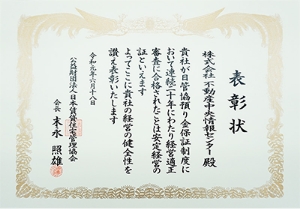 表彰状
株式会社 不動産中央情報センター 殿
貴社が日管協預り金保証制度に
おいて連続二十年にわたり経営適正
審査に合格されたことは安定経営の
証といえます
よってここに貴社の経営の健全性を
讃え表彰いたします
令和元年六月十八日
公益財団法人日本賃貸住宅管理協会
会長 末永 照雄